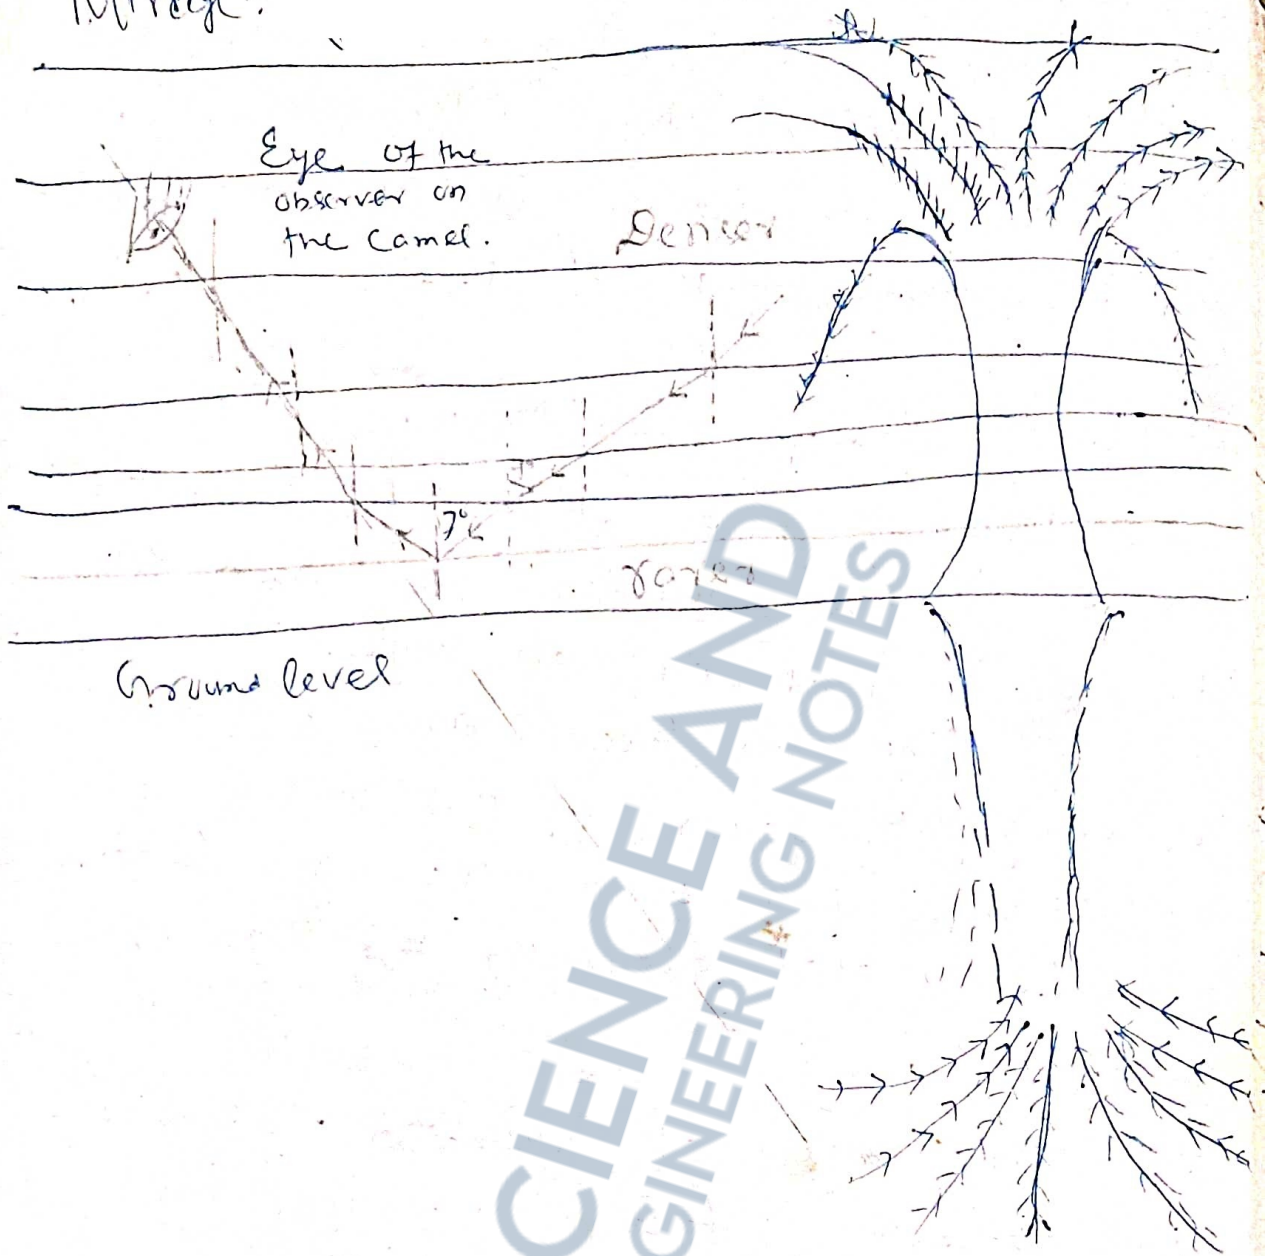 Mirage.
Eye of the
observer on
the camel.
Denser
7°
rarer
Ground level
CIENCE AND
GINEERING NOTES